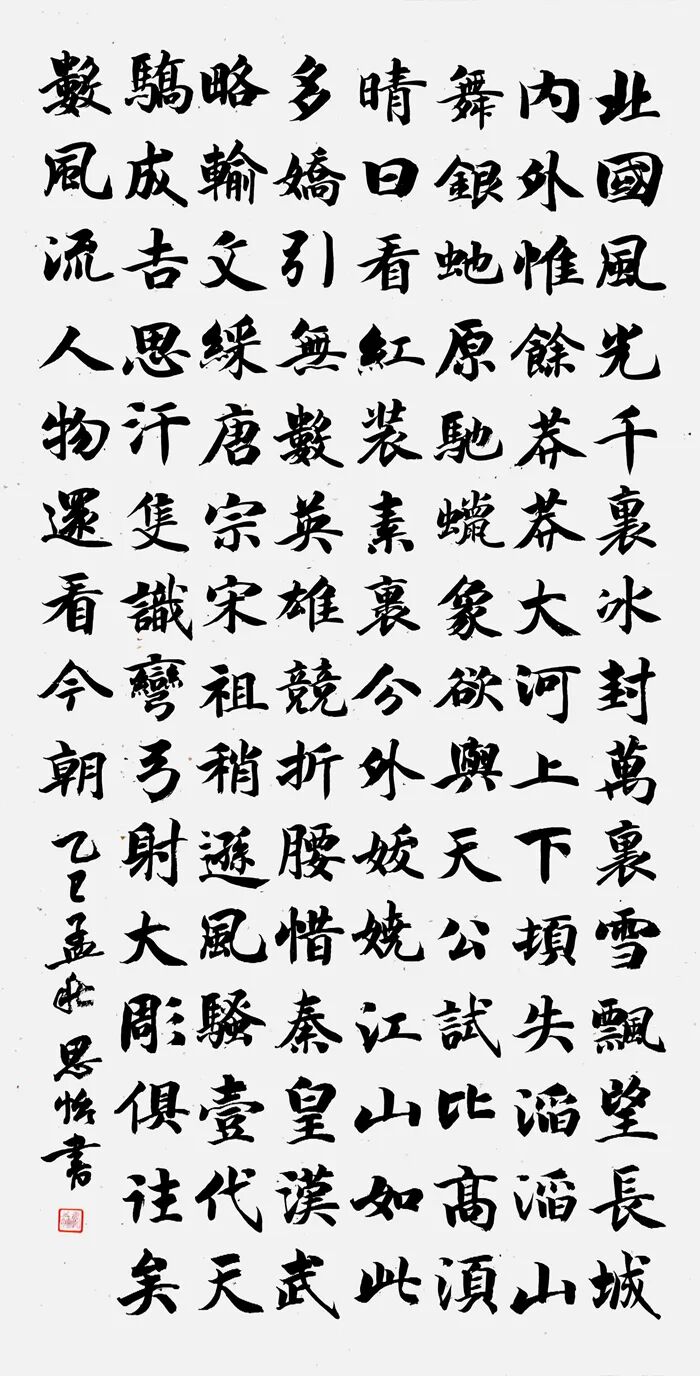 北國風光千裏冰封萬裏雪飄望長城
内外惟餘莽莽大河上下頓失滔滔山
舞銀虵原馳蠟象欲與天公試比高湏
晴日看紅装素裹分外妖嬈江山如此
多嬌引無數英雄競折腰惜秦皇漢武
略輸文綵唐宗宋祖稍遜風騷壹代天
驕成吉思汗隻識彎弓射大彫俱往矣
數風流人物還看今朝
乙巳孟秋思書